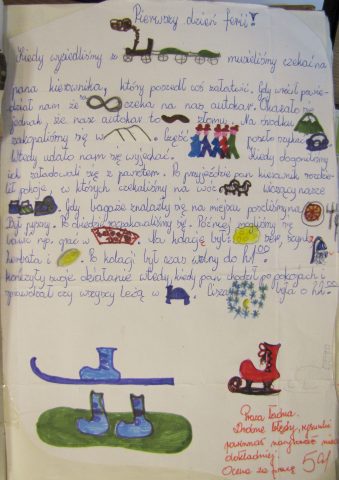 Pierwszy dzień ferii!
Kiedy wysiedliśmy z musieliśmy czekać na
pana kierownika, który poszedł coś załatwić. Gdy wrócił powie-
dział nam że czeka na nas autokar. Okazało się
jednak, że nasz autokar to złomu. Na środku
zakopaliśmy się w Część poszło szukać
Wtedy udało nam się wyjechać. Kiedy dogoniliśmy
ich załadowali się z powrotem. Po przyjeździe pan kierownik rozdzie-
lał pokoje, w których czekaliśmy na wóz wiozący nasze
Gdy bagaże znalazły się na miejscu poszliśmy na
Był pyszny. Po obiedzie rozpakowaliśmy się. Później zajęliśmy się
np. grą w Na kolację był ser,
herbata i Po kolacji był czas wolny do
swoje działanie wtedy, kiedy pan chodził po pokojach i
sprawdzał czy wszyscy leżą w była o
Praca ładna.
Drobne błędy, rysunki
powinnaś narysować
dokładniej.
Ocena za pracę 5